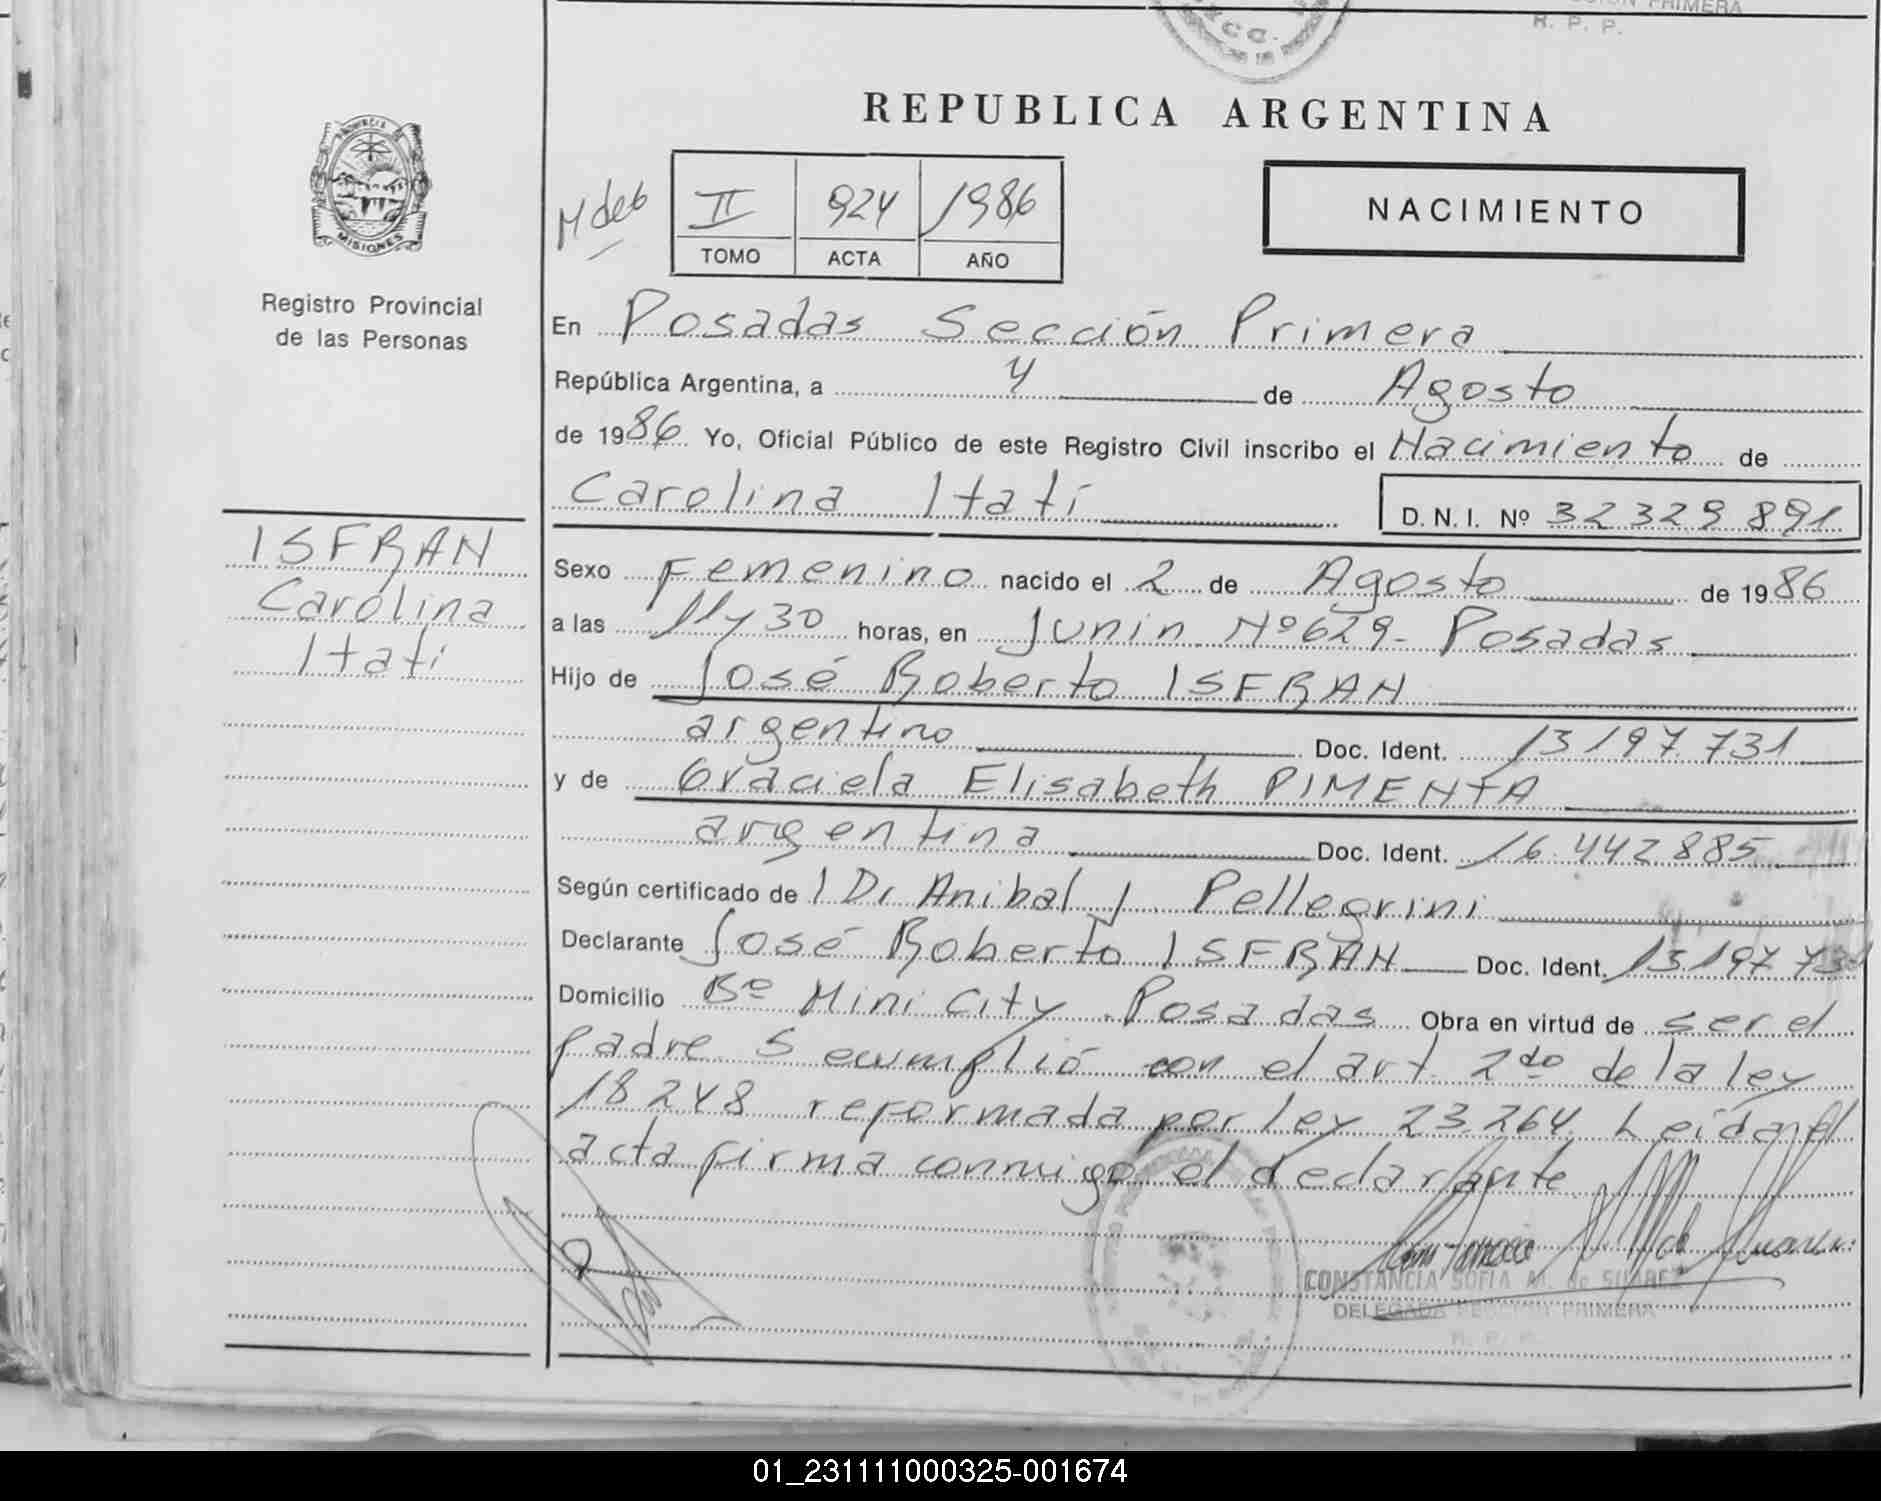 CION PRIMERA
R. P. P.
REPUBLICA ARGENTINA
PROVINCIA
MISIONES
Registro Provincial
de las Personas
II 924 1986
TOMO ACTA AÑO
NACIMIENTO
En Posadas Sección Primera
República Argentina, a 4 de Agosto
de 1986 Yo, Oficial Público de este Registro Civil inscribo el Nacimiento de
Carolina Itatí D. N. I. Nº 32 329 891
ISFRAN
Carolina
Itatí
Sexo Femenino nacido el 2 de Agosto de 1986
a las 11 y 30 horas, en Junin Nº 629 - Posadas
Hijo de José Roberto ISFRAN
argentino Doc. Ident. 13 197 731
y de Graciela Elisabeth PIMENTA
argentina Doc. Ident. 16.442 885
Según certificado de 1 Dr Anibal J. Pellegrini
Declarante José Roberto ISFRAN Doc. Ident. 13 197 731
Domicilio Bº Mini City . Posadas Obra en virtud de ser el
padre. Se cumplió con el art. 2do de la ley
18 248 reformada por ley 23.264. Leída el
acta firma conmigo el declarante
CONSTANCIA SOFIA M. de SUAREZ
DELEGADA SECCION PRIMERA
R. P. P.
01_231111000325-001674